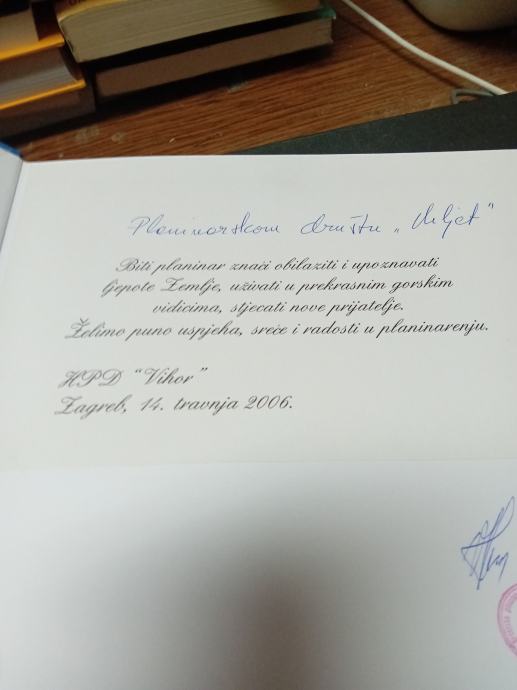 Planinarskom društvu „Mljet"
Biti planinar znači obilaziti i upoznavati
ljepote Zemlje, uživati u prekrasnim gorskim
vidicima, stjecati nove prijatelje.
Želimo puno uspjeha, sreće i radosti u planinarenju.
HPD "Vihor"
Zagreb, 14. travnja 2006.